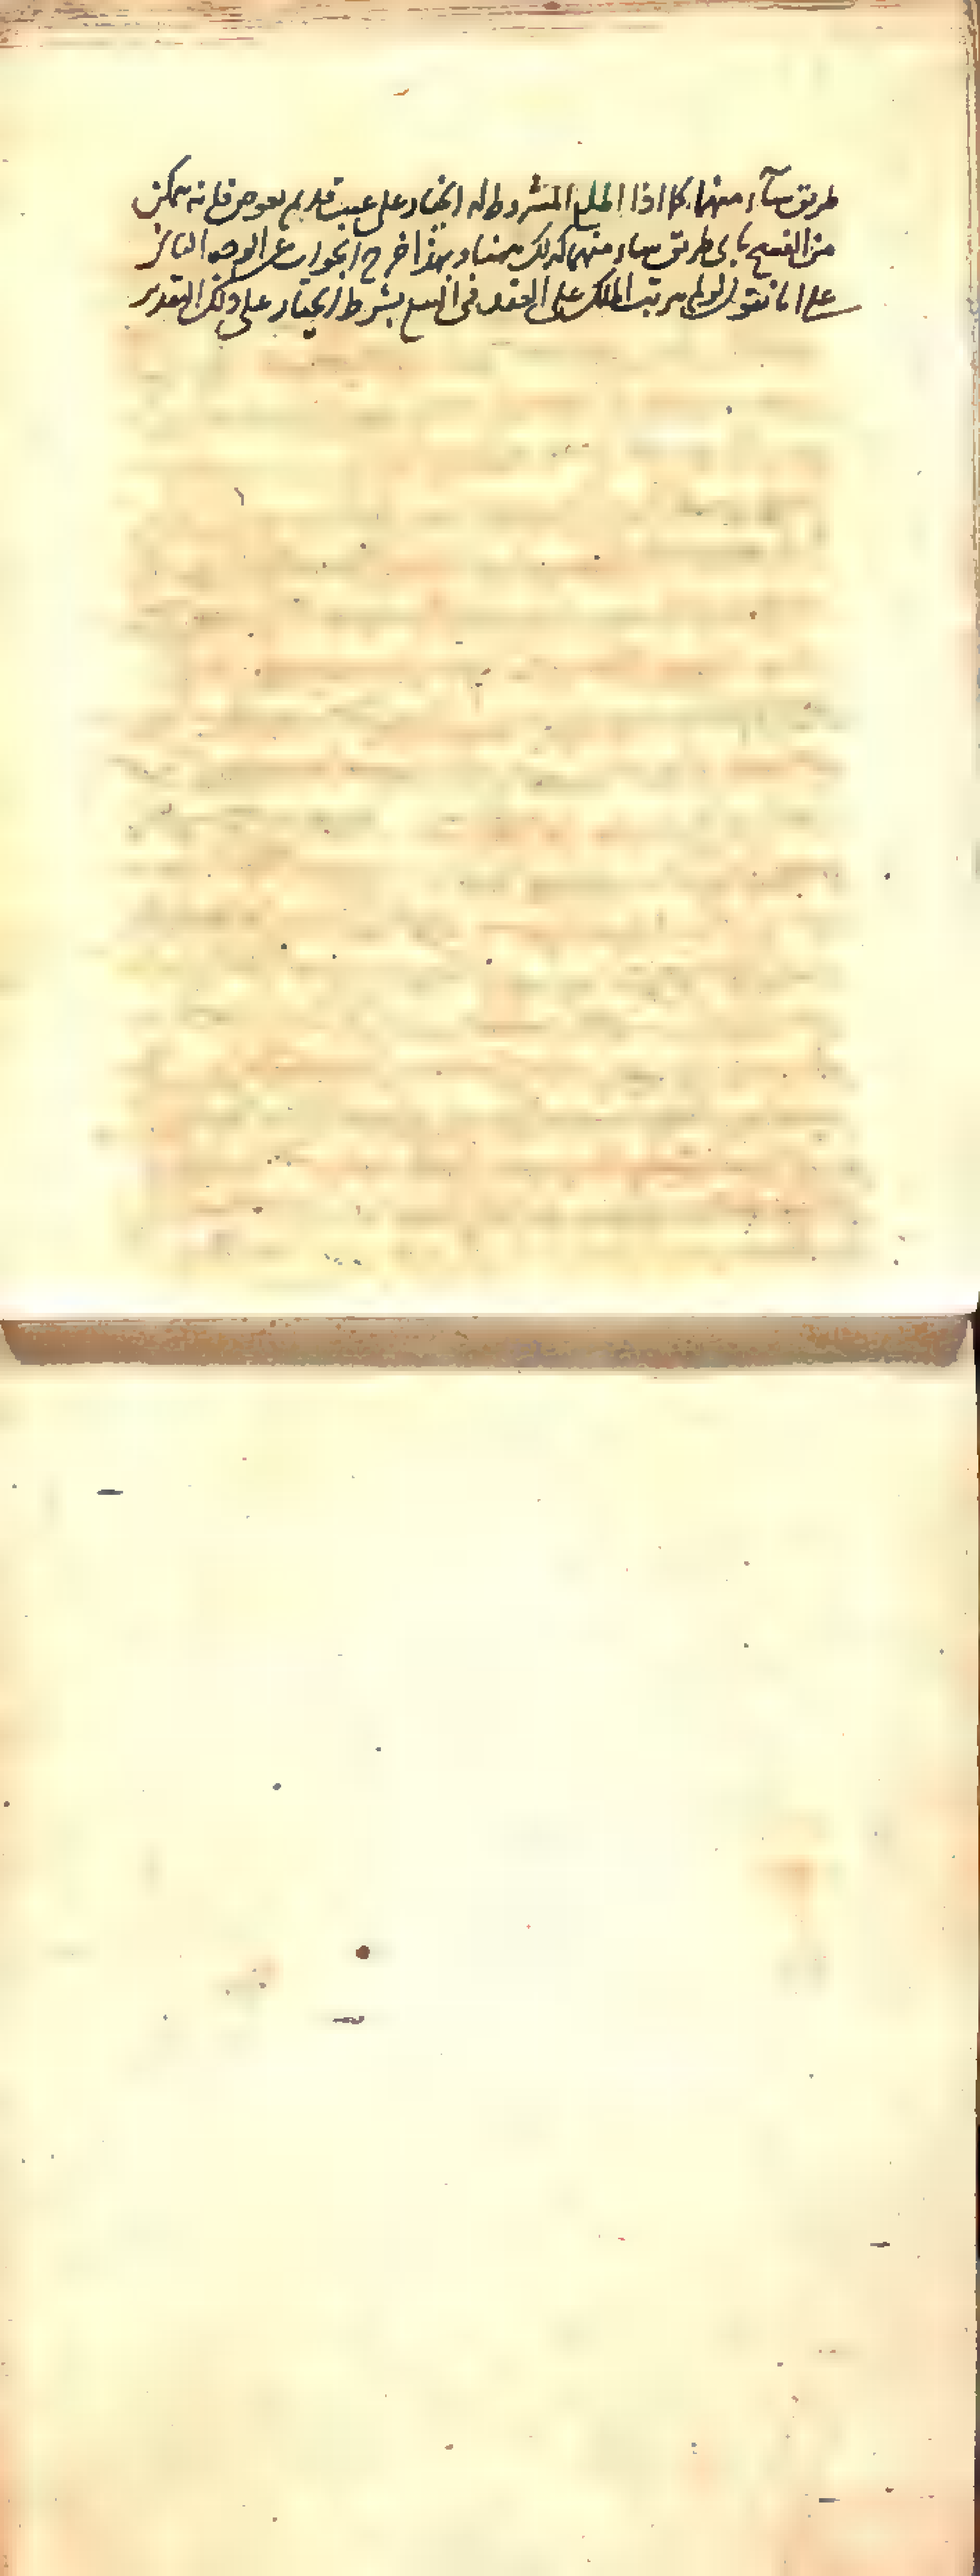 طريق شآء منهما كما اذا اطلع المشروط له الخيار على عيب قديم بعوض فانه تمكن
من الفسخ باى طريق شاء منهما كذلك ههنا وبهذا خرج الجواب عن الوجه الثانى
على انا نقول لو لم يرتب الملك على العقد فى البيع بشرط الخيار على ذلك التقدير